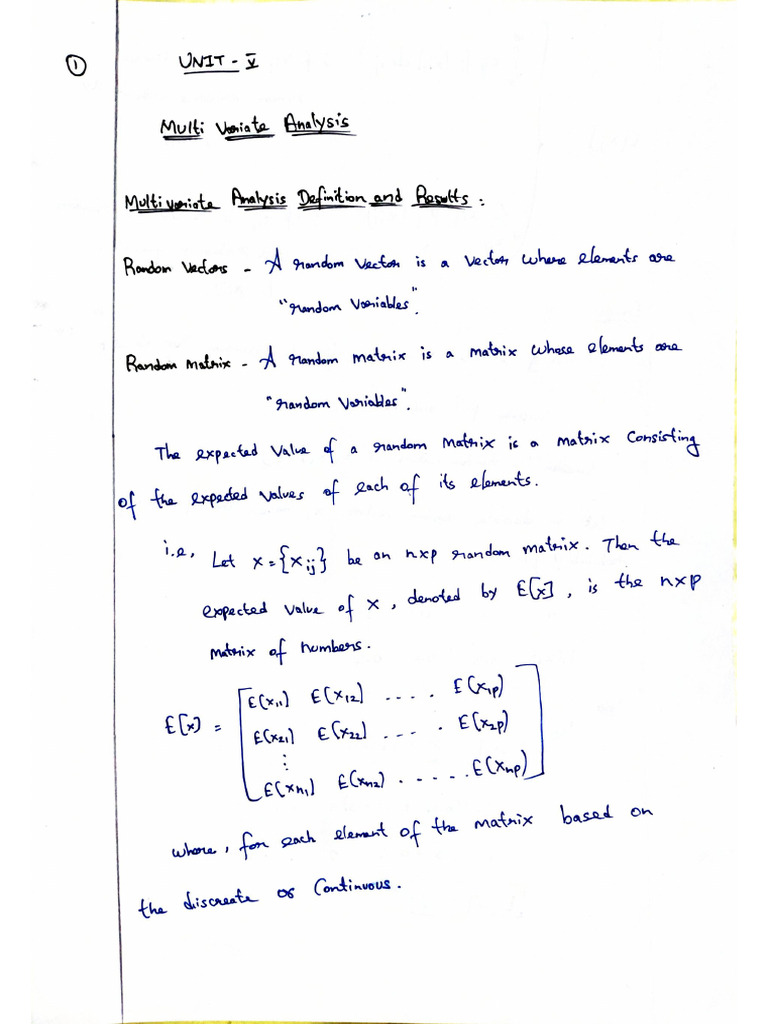 ①
UNIT - V
Multi Variate Analysis
Multivariate Analysis Definition and Results :
Random Vectors - A random vector is a vector where elements are
"random variables".
Random Matrix - A random matrix is a matrix whose elements are
"random variables".
The expected value of a random matrix is a matrix consisting
of the expected values of each of its elements.
i.e, Let x = {x_ij} be an nxp random matrix. Then the
expected value of x, denoted by E[x], is the nxp
matrix of numbers.
E[x] = [E(x11) E(x12) .... E(x1p)
E(x21) E(x22) .... E(x2p)
⋮
E(xn1) E(xn2) ...... E(xnp)]
where, for each element of the matrix based on
the discreate or Continuous.